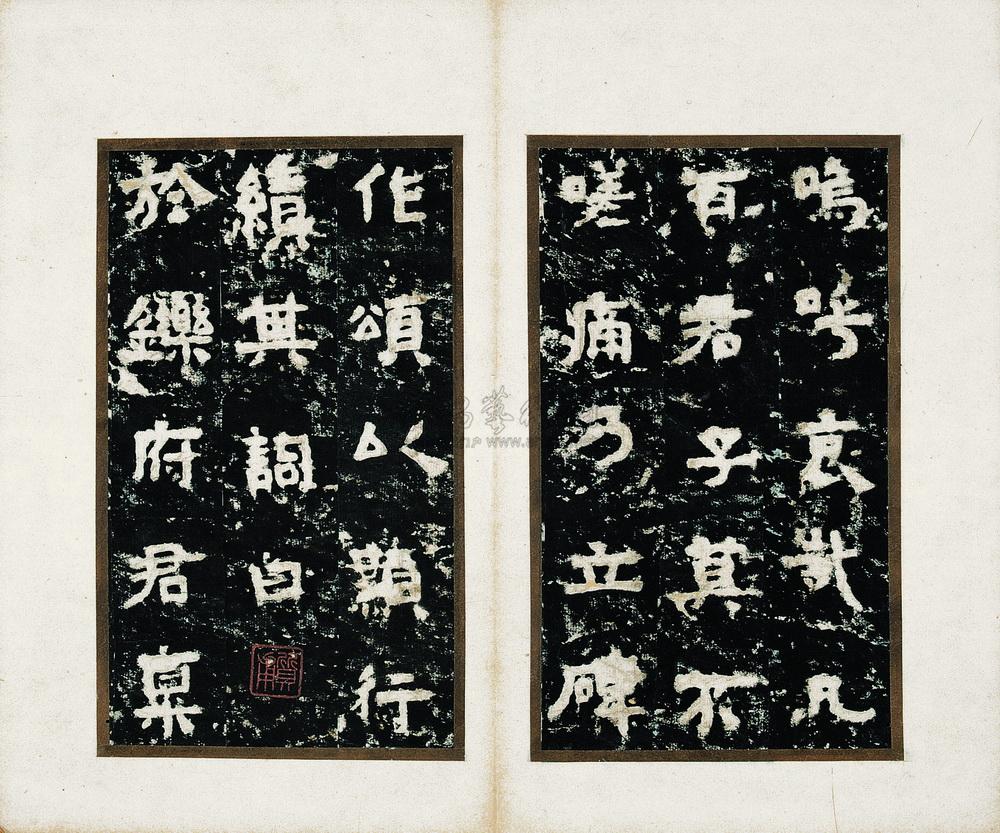 嗚呼哀哉凡
百君子其不
嗟痛乃立碑
作頌以顯行
績其詞曰
於鑠府君稟